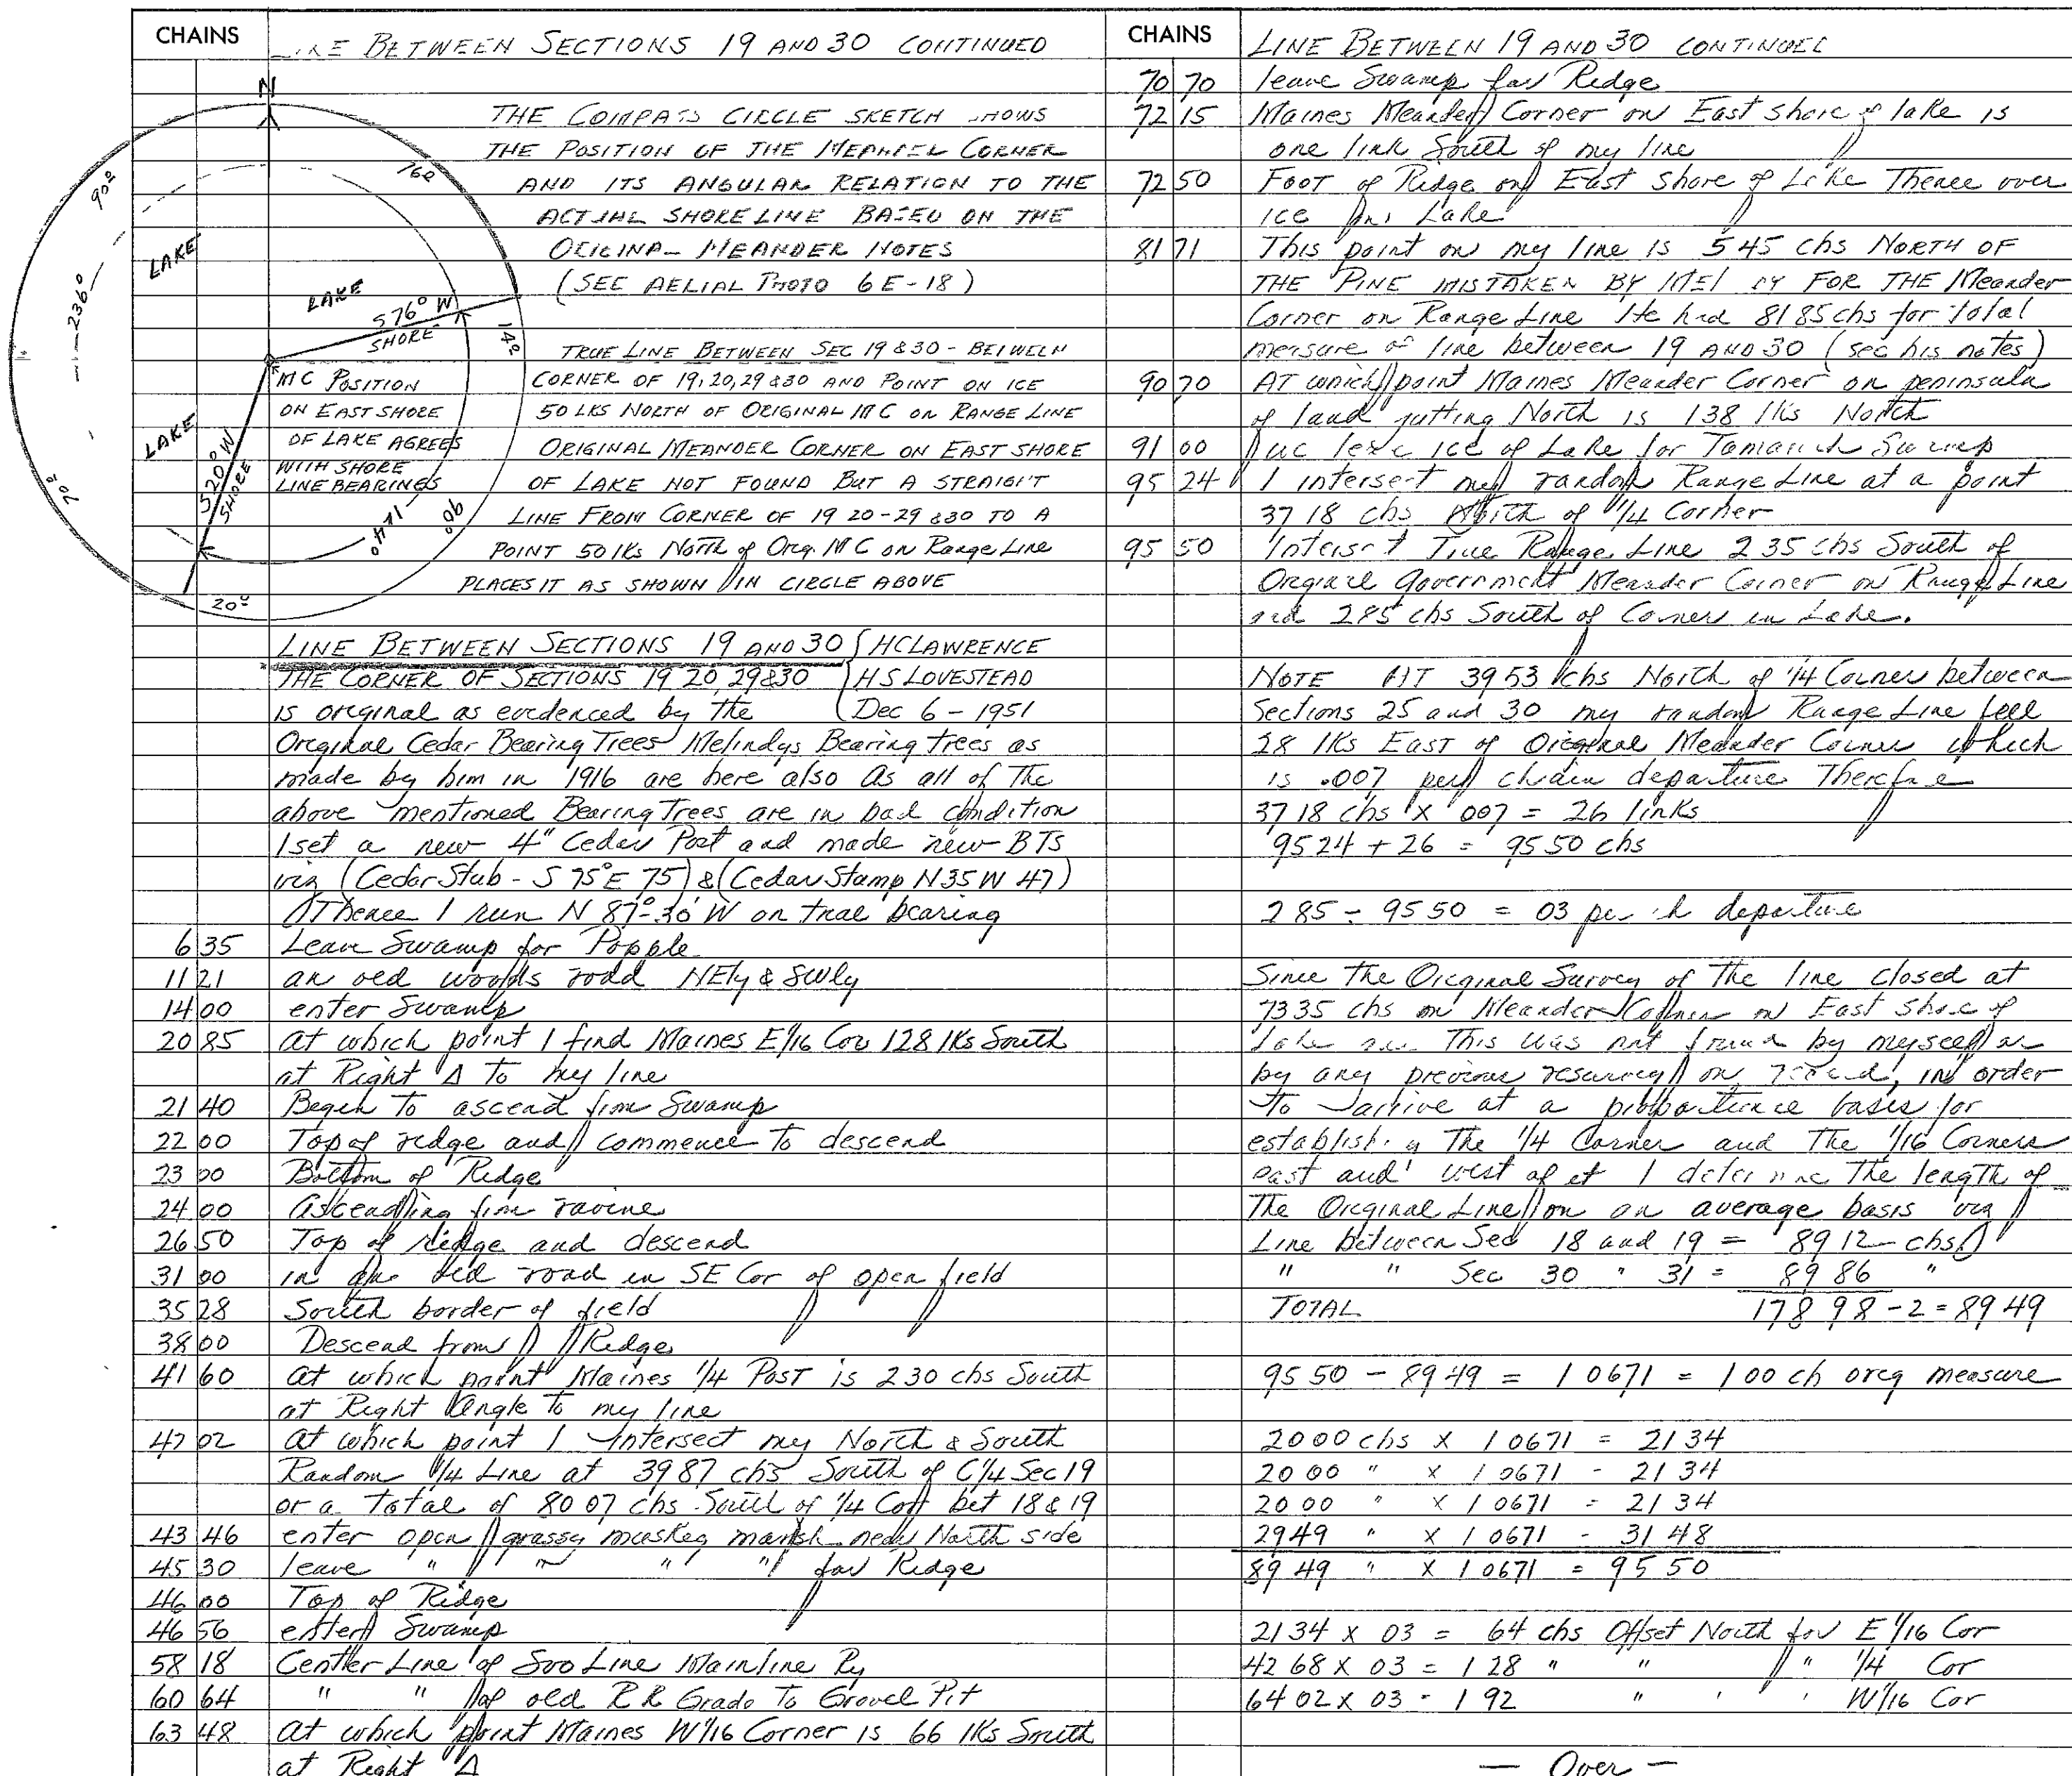 CHAINS
LINE BETWEEN SECTIONS 19 AND 30 CONTINUED
N
THE COMPASS CIRCLE SKETCH SHOWS
THE POSITION OF THE MEANDER CORNER
AND ITS ANGULAR RELATION TO THE
ACTUAL SHORE LINE BASED ON THE
ORIGINAL MEANDER NOTES
(SEE AERIAL PHOTO 6E-18)
90°
76°
LAKE
236°
LAKE
S76° W
SHORE
14°
TRUE LINE BETWEEN SEC 19 & 30 - BETWEEN
MC POSITION
CORNER OF 19, 20, 29 & 30 AND POINT ON ICE
ON EAST SHORE
50 LKS NORTH OF ORIGINAL MC ON RANGE LINE
OF LAKE AGREES
ORIGINAL MEANDER CORNER ON EAST SHORE
LAKE
WITH SHORE
LINE BEARINGS
OF LAKE NOT FOUND BUT A STRAIGHT
S20° W
SHORE
70°
LINE FROM CORNER OF 19 20-29 & 30 TO A
124°
90°
POINT 50 lks North of Org. MC on Range Line
PLACES IT AS SHOWN IN CIRCLE ABOVE
20°
LINE BETWEEN SECTIONS 19 AND 30 { HC LAWRENCE
THE CORNER OF SECTIONS 19 20, 29 & 30 { HS LOVESTEAD
is original as evidenced by the { Dec 6 - 1951
Original Cedar Bearing Trees Melindys Bearing trees as
made by him in 1916 are here also As all of the
above mentioned Bearing Trees are in bad condition
I set a new 4" Cedar Post and made new BTs
viz (Cedar Stub - S 75° E 75) & (Cedar Stamp N35 W 47)
Thence I run N 87°-30' W on true bearing
6 35 Leave Swamp for Popple
11 21 an old woods road NEly & SWly
14 00 enter Swamp
20 85 at which point I find Maines E 1/16 Cor 128 lks South
at Right ∆ to my line
21 40 Begin to ascend from Swamp
22 00 Top of ridge and commence to descend
23 00 Bottom of Ridge
24 00 Ascending from ravine
26 50 Top of ridge and descend
31 00 in an old road in SE Cor of open field
35 28 South border of field
38 00 Descend from Ridge
41 60 at which point Maines 1/4 Post is 2 30 chs South
at Right Angle to my line
42 02 at which point I intersect my North & South
Random 1/4 Line at 39 87 chs South of C 1/4 Sec 19
or a total of 80 07 chs South of 1/4 Cor bet 18 & 19
43 46 enter open grassy muskeg marsh near North side
45 30 leave " " " " for Ridge
46 00 Top of Ridge
46 56 enter Swamp
58 18 Center Line of Soo Line Mainline Ry
60 64 " " of old RR Grade to Gravel Pit
63 48 at which point Maines W 1/16 Corner is 66 lks South
at Right ∆
CHAINS
LINE BETWEEN 19 AND 30 CONTINUED
70 70 leave Swamp for Ridge
72 15 Maines Meander Corner on East shore of lake is
one link South of my line
72 50 FOOT of Ridge on East shore of Lake Thence over
ice Lake
81 71 This point on my line is 5 45 chs NORTH OF
THE PINE MISTAKEN BY FOR THE Meander
Corner on Range Line He had 81 85 chs for total
measure of line between 19 AND 30 (see his notes)
90 70 AT which point Maines Meander Corner on peninsula
of land jutting North is 138 lks North
91 00 ice of Lake for Tamarack Swamp
95 24 I intersect my random Range Line at a point
37 18 chs North of 1/4 Corner
95 50 Intersect True Range Line 2 35 chs South of
Original Government Meander Corner on Range Line
and 2 85 chs South of Corner in Lake.
NOTE AT 39 53 chs North of 1/4 Corner between
Sections 25 and 30 my random Range Line fell
28 lks East of Original Meander Corner which
is .007 per chain departure Therefore
37 18 chs x 007 = 26 links
95 24 + 26 = 95 50 chs
2 85 ÷ 95 50 = 03 per ch departure
Since the Original Survey of the line closed at
73 35 chs on Meander Corner on East shore of
lake This was not found by myself or
by any previous resurvey on record, in order
to arrive at a proportionate basis for
establishing The 1/4 Corner and The 1/16 Corners
east and west of it I determine the length of
The Original Line on an average basis viz
Line between Sec 18 and 19 = 89 12 chs
" " Sec 30 " 31 = 89 86 "
TOTAL 178 98 ÷ 2 = 89 49
95 50 ÷ 89 49 = 1 0671 = 1 00 ch orig measure
20 00 chs x 1 0671 = 21 34
20 00 " x 1 0671 = 21 34
20 00 " x 1 0671 = 21 34
29 49 " x 1 0671 - 31 48
89 49 " x 1 0671 = 95 50
21 34 x 03 = 64 chs Offset North for E 1/16 Cor
42 68 x 03 = 1 28 " " " 1/4 Cor
64 02 x 03 = 1 92 " " " W 1/16 Cor
— Over —